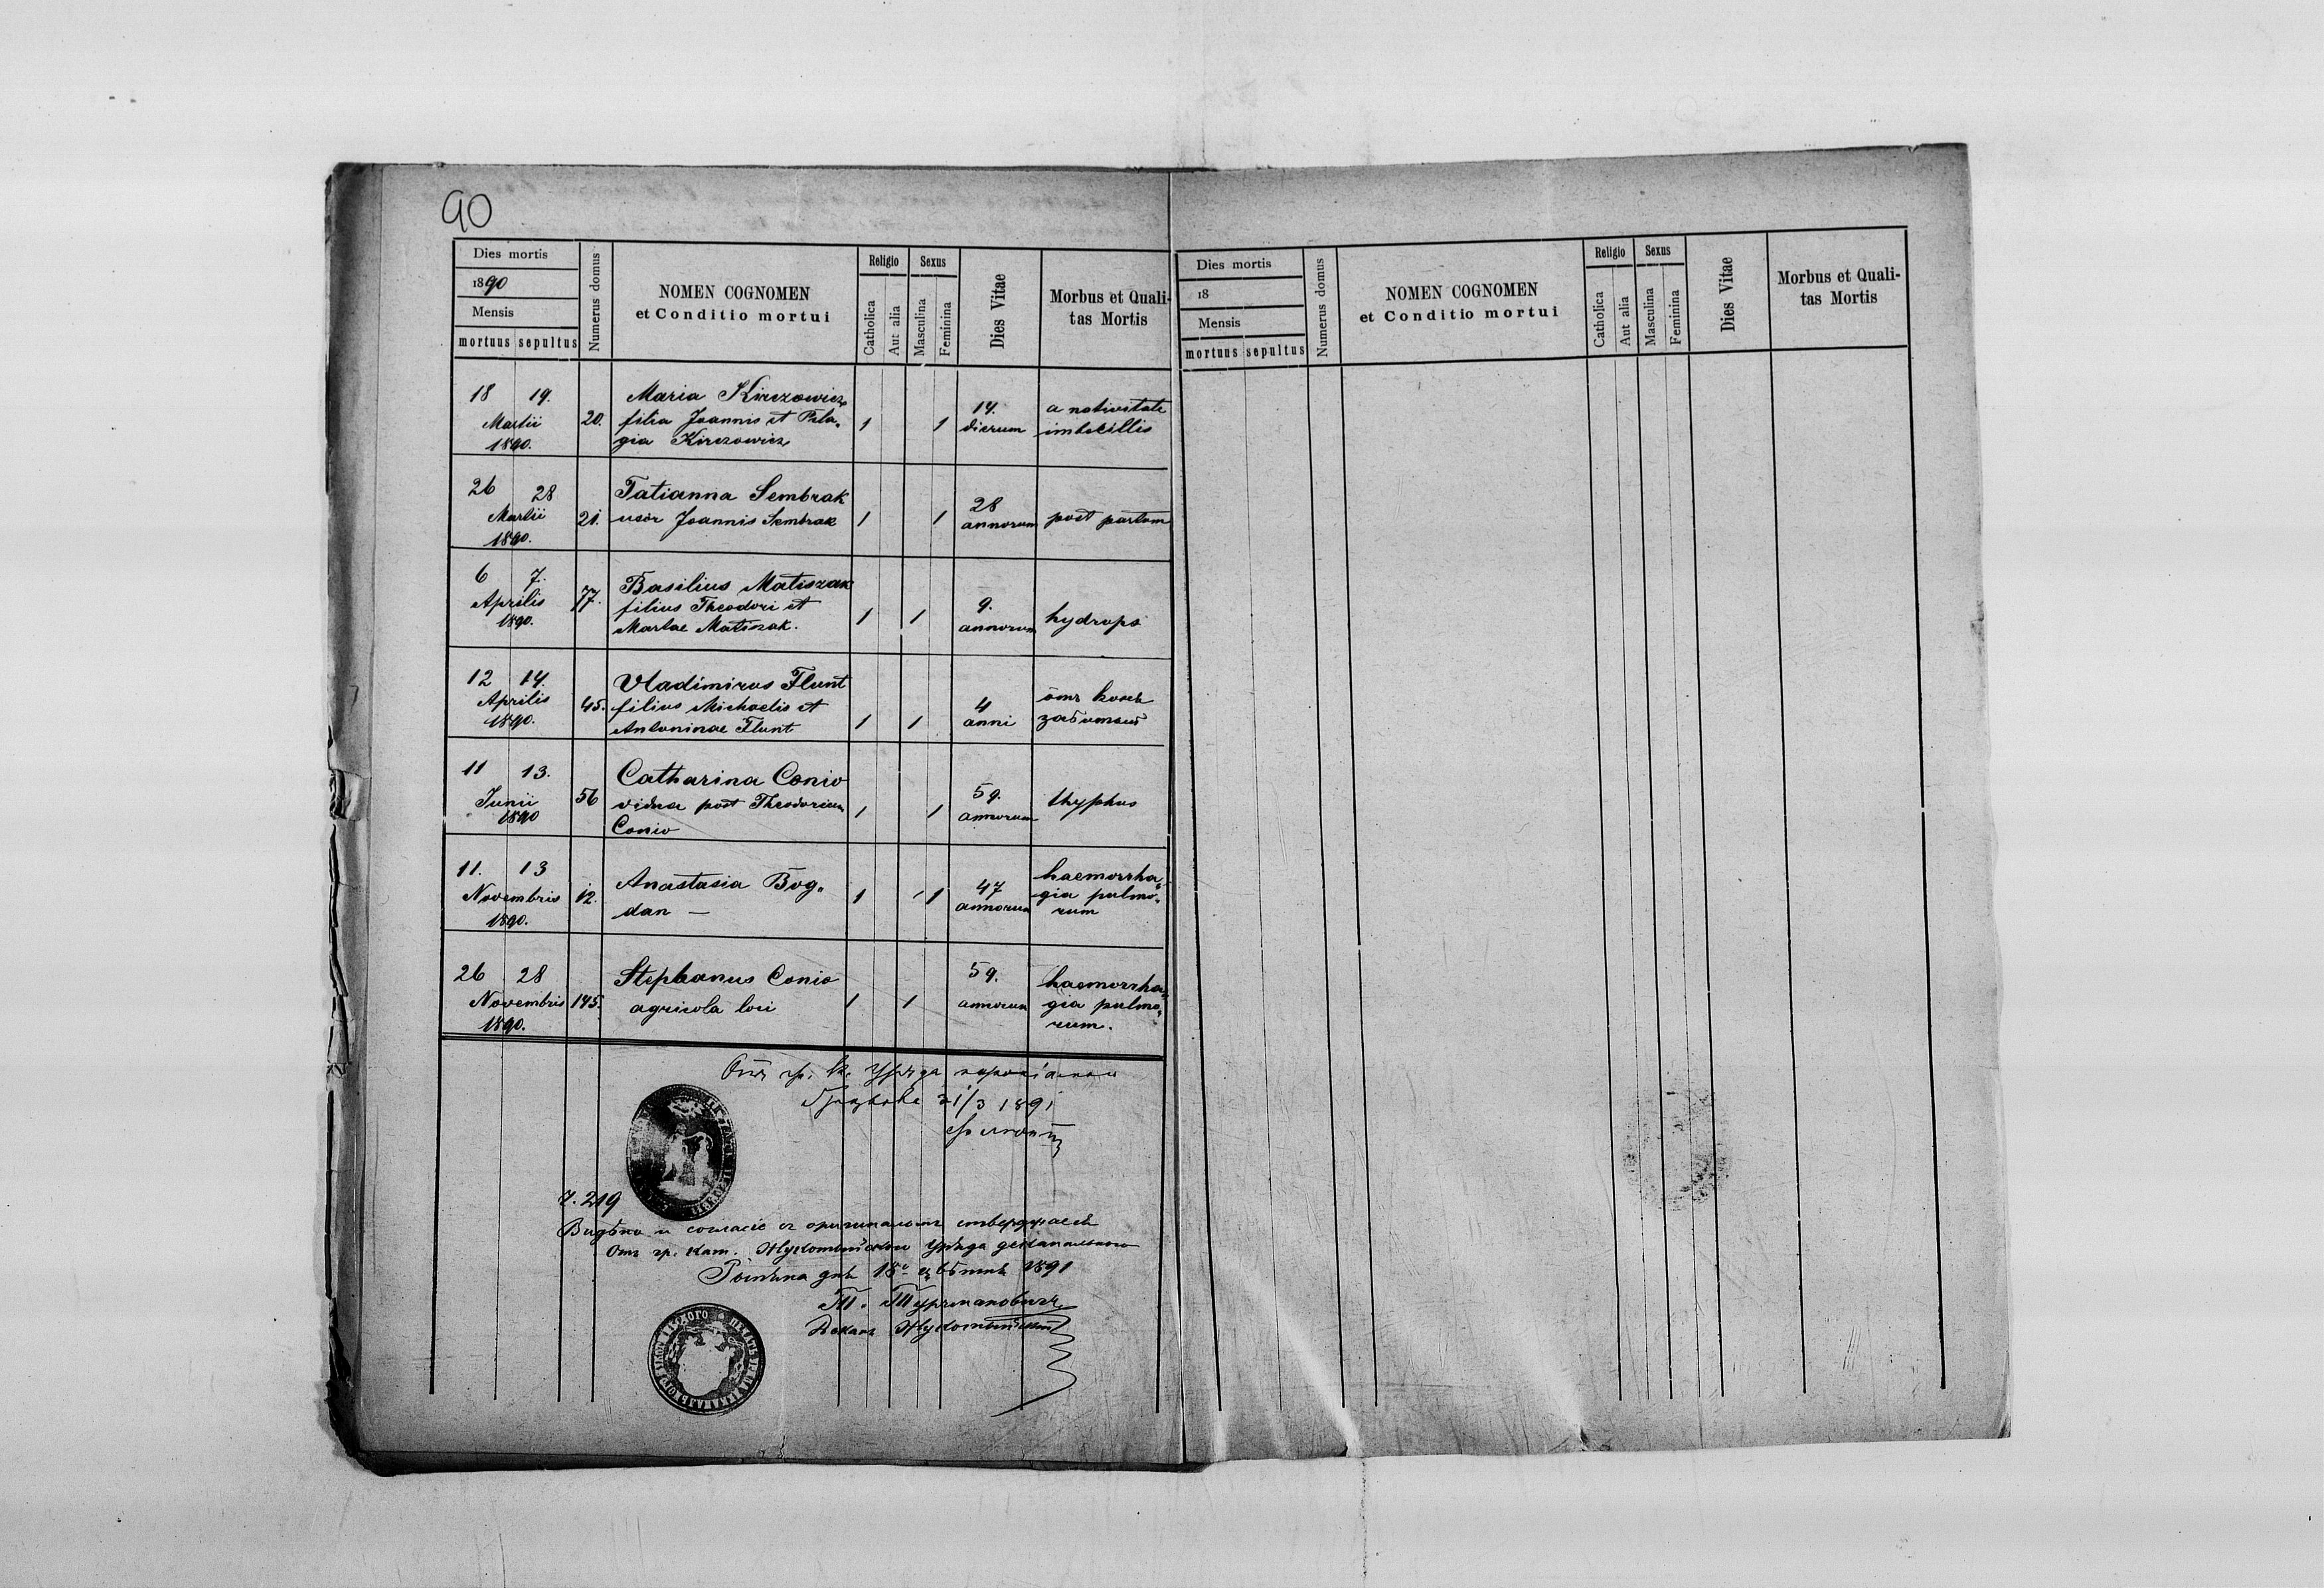 90
Dies mortis
1890
Mensis
mortuus sepultus
Numerus domus
NOMEN COGNOMEN
et Conditio mortui
Religio
Catholica
Aut alia
Sexus
Masculina
Feminina
Dies Vitae
Morbus et Quali-
tas Mortis
18 19. Martii 1890. 20.
Maria Kirczowicz
filia Joannis et Pela„
gia Kirczowicz
1 1
14. dierum
a nativitate
imbecillis
26 28 Martii 1890. 21.
Tatianna Sembrak
uxor Joannis Sembrak
1 1
28 annorum
post partum
6 7. Aprilis 1890. 77.
Basilius Matiszak
filius Theodori et
Martae Matiszak.
1 1
9. annorum
hydrops
12 14. Aprilis 1890. 45.
Vladimirus Flunt
filius Michaelis et
Antoninae Flunt
1 1
4 anni
11 13. Junii 1890 56
Catharina Conio
vidua post Theodorium
Conio
1 1
59. annorum
thyphus
11. 13 Novembris 1890. 12.
Anastasia Bog„
dan —
1 1
47 annorum
haemorrha„
gia pulmo„
rum
26 28 Novembris 1890. 145.
Stephanus Conio
agricola loci
1 1
59. annorum
haemorrha„
gia pulmo„
rum.
21/3 1891
219
Видѣно и согласіе съ оригиналомъ
Отъ гр. кат.
1891
Dies mortis
18
Mensis
mortuus sepultus
Numerus domus
NOMEN COGNOMEN
et Conditio mortui
Religio
Catholica
Aut alia
Sexus
Masculina
Feminina
Dies Vitae
Morbus et Quali-
tas Mortis